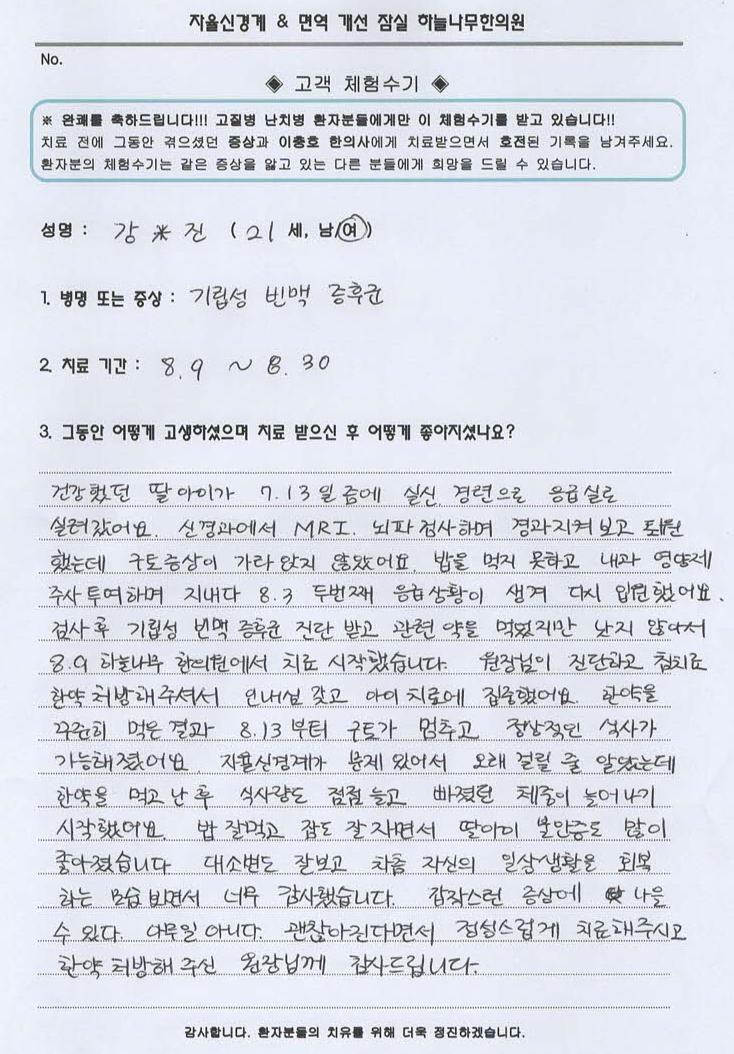 자율신경계 & 면역 개선 잠실 하늘나무한의원
No.
◈ 고객 체험수기 ◈
※ 완쾌를 축하드립니다!!! 고질병 난치병 환자분들에게만 이 체험수기를 받고 있습니다!!
치료 전에 그동안 겪으셨던 증상과 이충호 한의사에게 치료받으면서 호전된 기록을 남겨주세요.
환자분의 체험수기는 같은 증상을 앓고 있는 다른 분들에게 희망을 드릴 수 있습니다.
성명 : 강 ※ 진 ( 21 세, 남/여)
1. 병명 또는 증상 : 기립성 빈맥 증후군
2. 치료 기간 : 8.9 ~ 8.30
3. 그동안 어떻게 고생하셨으며 치료 받으신 후 어떻게 좋아지셨나요?
건강했던 딸아이가 7.13일 금에 실신, 경련으로 응급실로
실려갔어요. 신경과에서 MRI. 뇌파검사하며 경과지켜보고 퇴원
했는데 구토증상이 가라앉지 않았어요. 밥을 먹지 못하고 내과 영양제
주사 투여하며 지내다 8.3 두번째 응급상황이 생겨 다시 입원했어요.
검사후 기립성 빈맥 증후군 진단 받고 관련 약을 먹었지만 낫지 않아서
8.9 하늘나무 한의원에서 치료 시작했습니다. 원장님이 진단하고 침치료
한약 처방해주셔서 인내심 갖고 아이 치료에 집중했어요. 한약을
꾸준히 먹은 결과 8.13부터 구토가 멈추고 정상적인 식사가
가능해졌어요. 자율신경계가 문제 있어서 오래 걸릴 줄 알았는데
한약을 먹고 난 후 식사량도 점점 늘고 빠졌던 체중이 늘어나기
시작했어요. 밥 잘먹고 잠도 잘 자면서 딸아이 불안증도 많이
좋아졌습니다. 대소변도 잘보고 차츰 자신의 일상생활을 회복
하는 모습 보면서 너무 감사했습니다. 갑작스런 증상에 나을
수 있다. 아무일 아니다. 괜찮아진다면서 정성스럽게 치료해주시고
한약 처방해 주신 원장님께 감사드립니다.
감사합니다. 환자분들의 치유를 위해 더욱 정진하겠습니다.